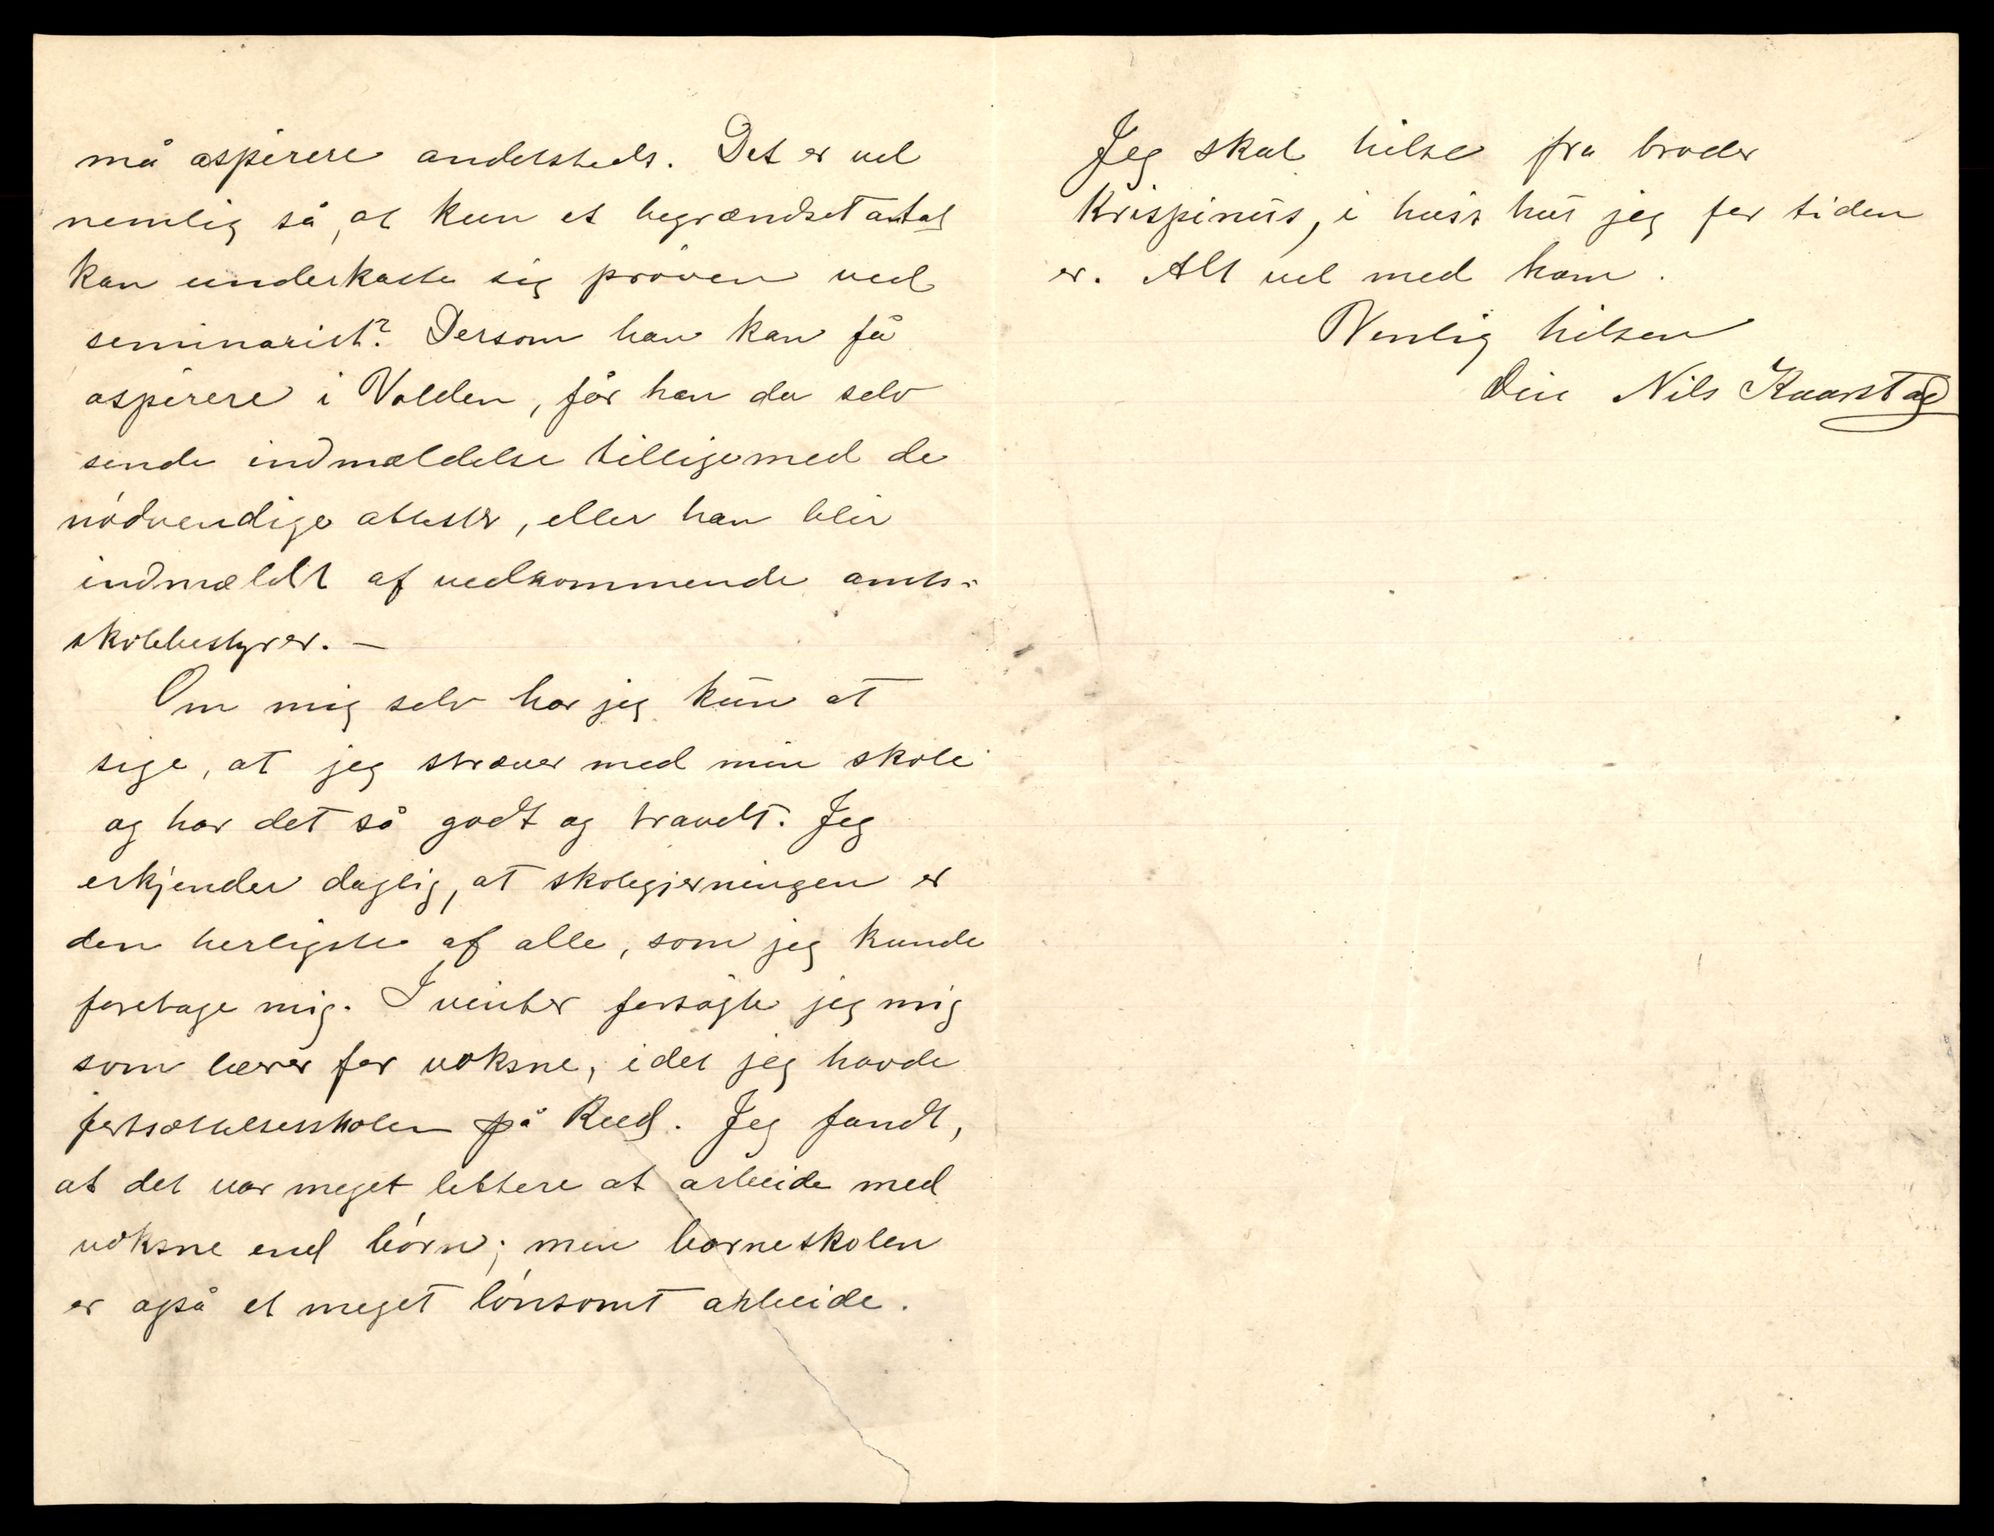 må aspirere andetsteds. Det er vel
nemlig så, at kun et begrændset antal
kan underkaste sig prøven ved
seminariet? Dersom han kan få
aspirere i Volden, får han da selv
sende indmældelse tilligemed de
nódvendige attester, eller han blir
indmældt af vedkommende amts-
skolebestyrer. —
Om mig selv har jeg kun at
sige, at jeg stræver med min skole
og har det så godt og travelt. Jeg
erkjender daglig, at skolegjerningen er
den herligste af alle, som jeg kunde
foretage mig. I vinter forsøgte jeg mig
som lærer for voksne, idet jeg havde
fortsættelsesskolen på Rud. Jeg fandt,
at det var meget lettere at arbeide med
voksne end bórn; men borneskolen
er også et meget lónsomt arbeide.
Jeg skal hilse fra broder
Krispinus, i hviss hus jeg for tiden
er. Alt vel med ham.
Venlig hilsen
Din Nils Kaarstad